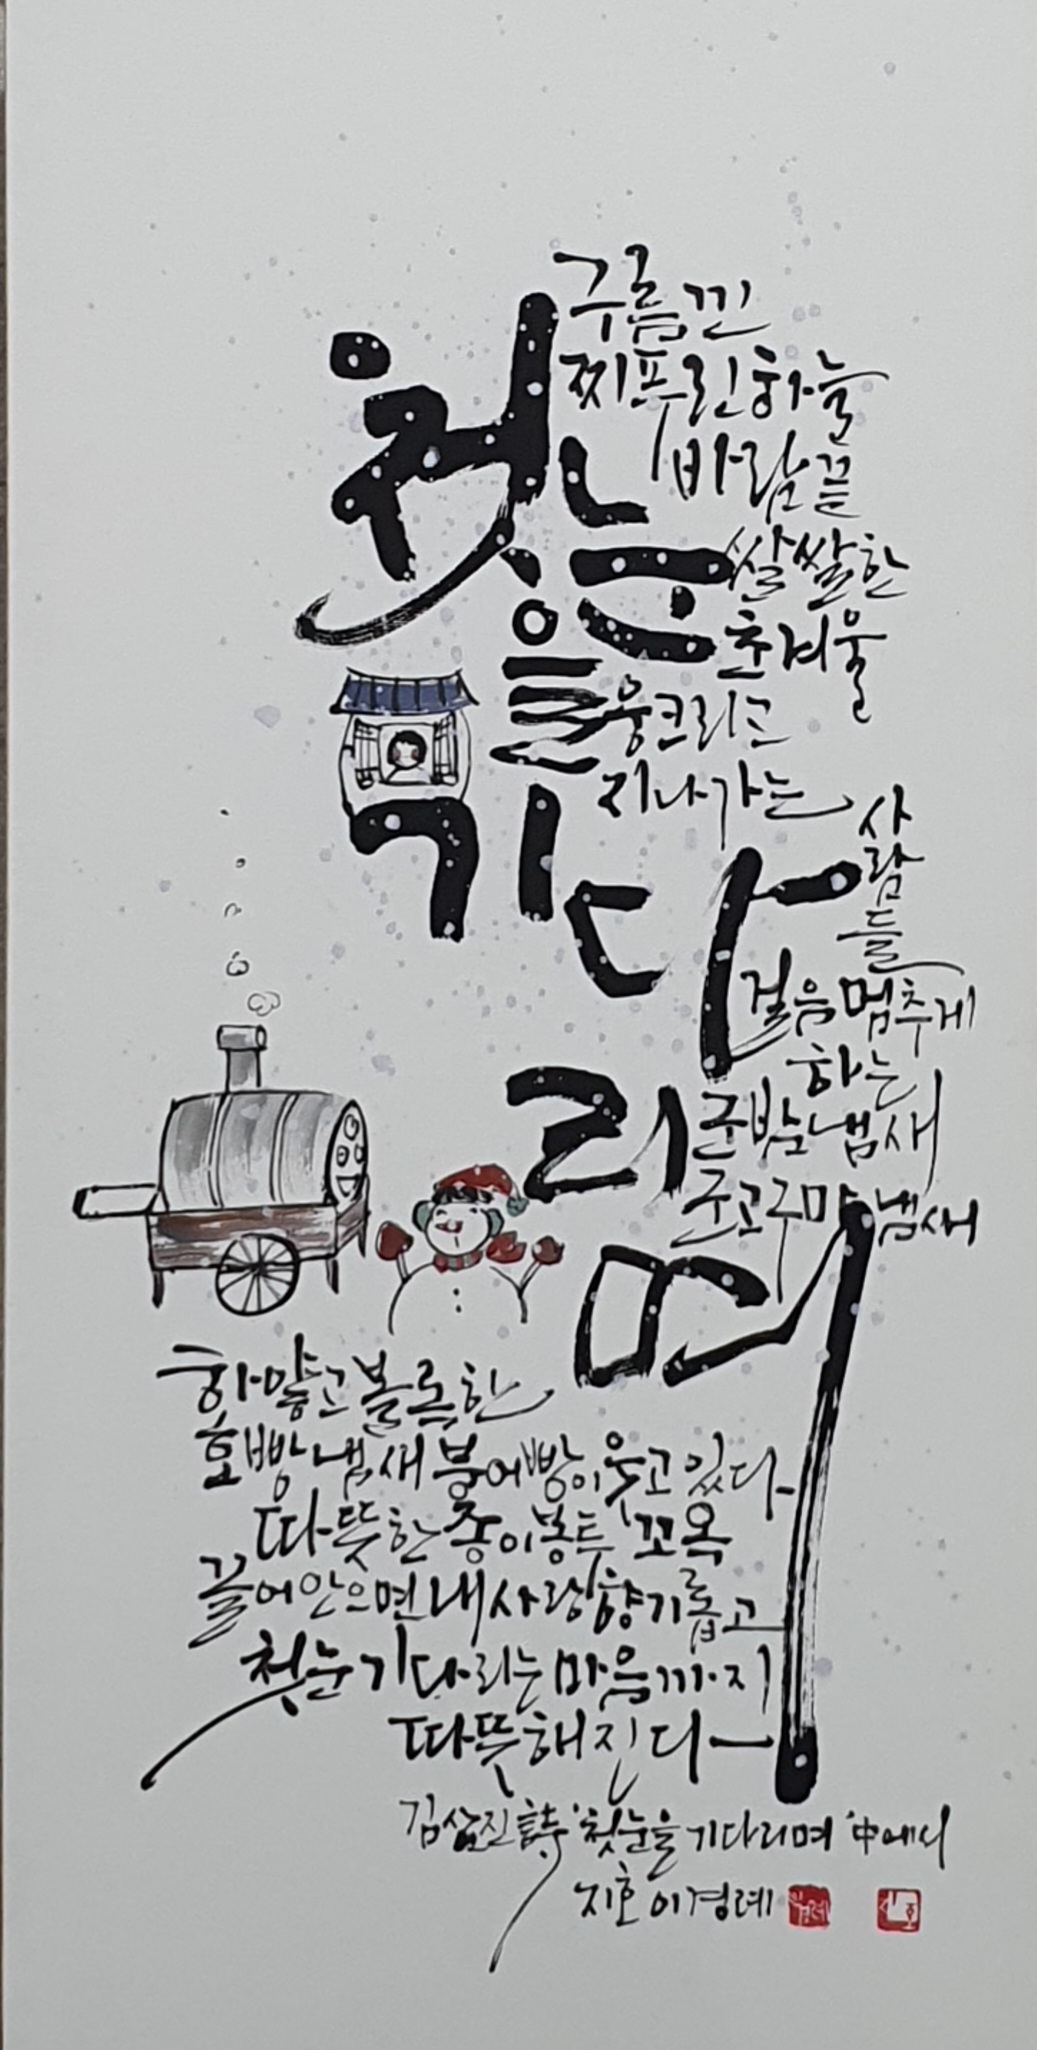 첫눈을
기다
리
며
구름 낀
찌푸린 하늘
바람끝
쌀쌀한
초겨울
웅크리고
지나가는
사람들
걸음 멈추게
하는
군밤 냄새
군고구마 냄새
하얗고 볼록한
호빵 냄새 붕어빵이 웃고 있다
따뜻한 종이봉투 꼬옥
끌어안으면 내 사랑 향기롭고
첫눈 기다리는 마음까지
따뜻해진다
김삼진 詩 '첫눈을 기다리며' 中에서
지호 이경례